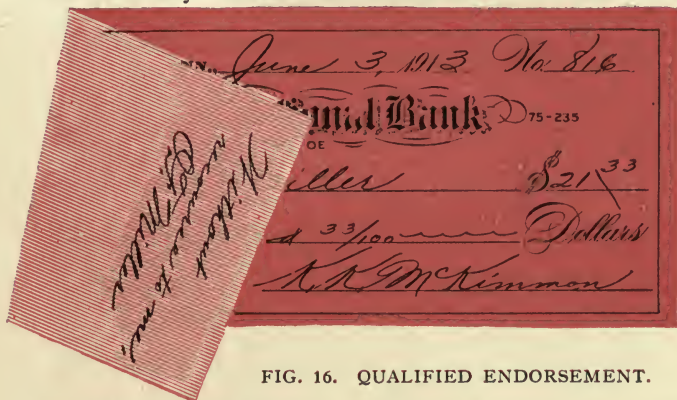 NN., June 3, 1913 No. 816
onal Bank 75-235
OE
iller $21 33
d 33/100 Dollars
K. K. McKimmon
Without
recourse to me,
Miller
FIG. 16. QUALIFIED ENDORSEMENT.